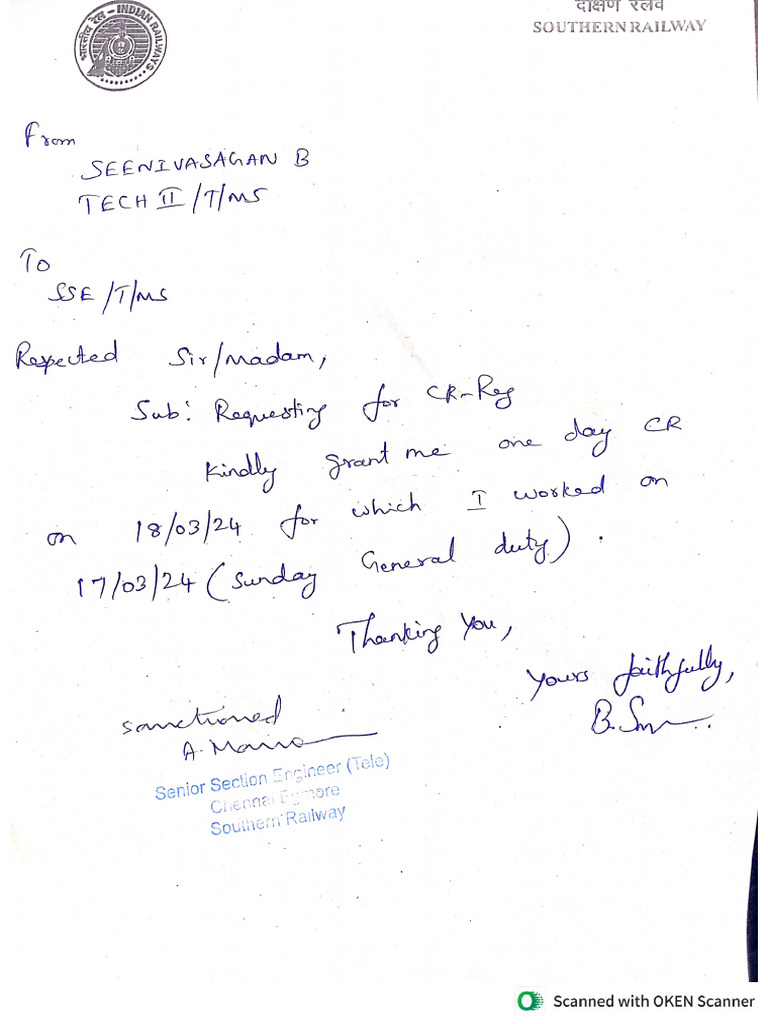 भारतीय रेल - INDIAN RAILWAYS
दक्षिण रेलवे
SOUTHERN RAILWAY
From
SEENIVASAGAN B
TECH II/T/MS
To
SSE/T/MS
Respected Sir/Madam,
Sub: Requesting for CR-Reg
Kindly grant me one day CR
on 18/03/24 for which I worked on
17/03/24 (Sunday General duty).
Thanking You,
Yours faithfully,
sanctioned
Senior Section Engineer (Tele)
Chennai Egmore
Southern Railway
Scanned with OKEN Scanner